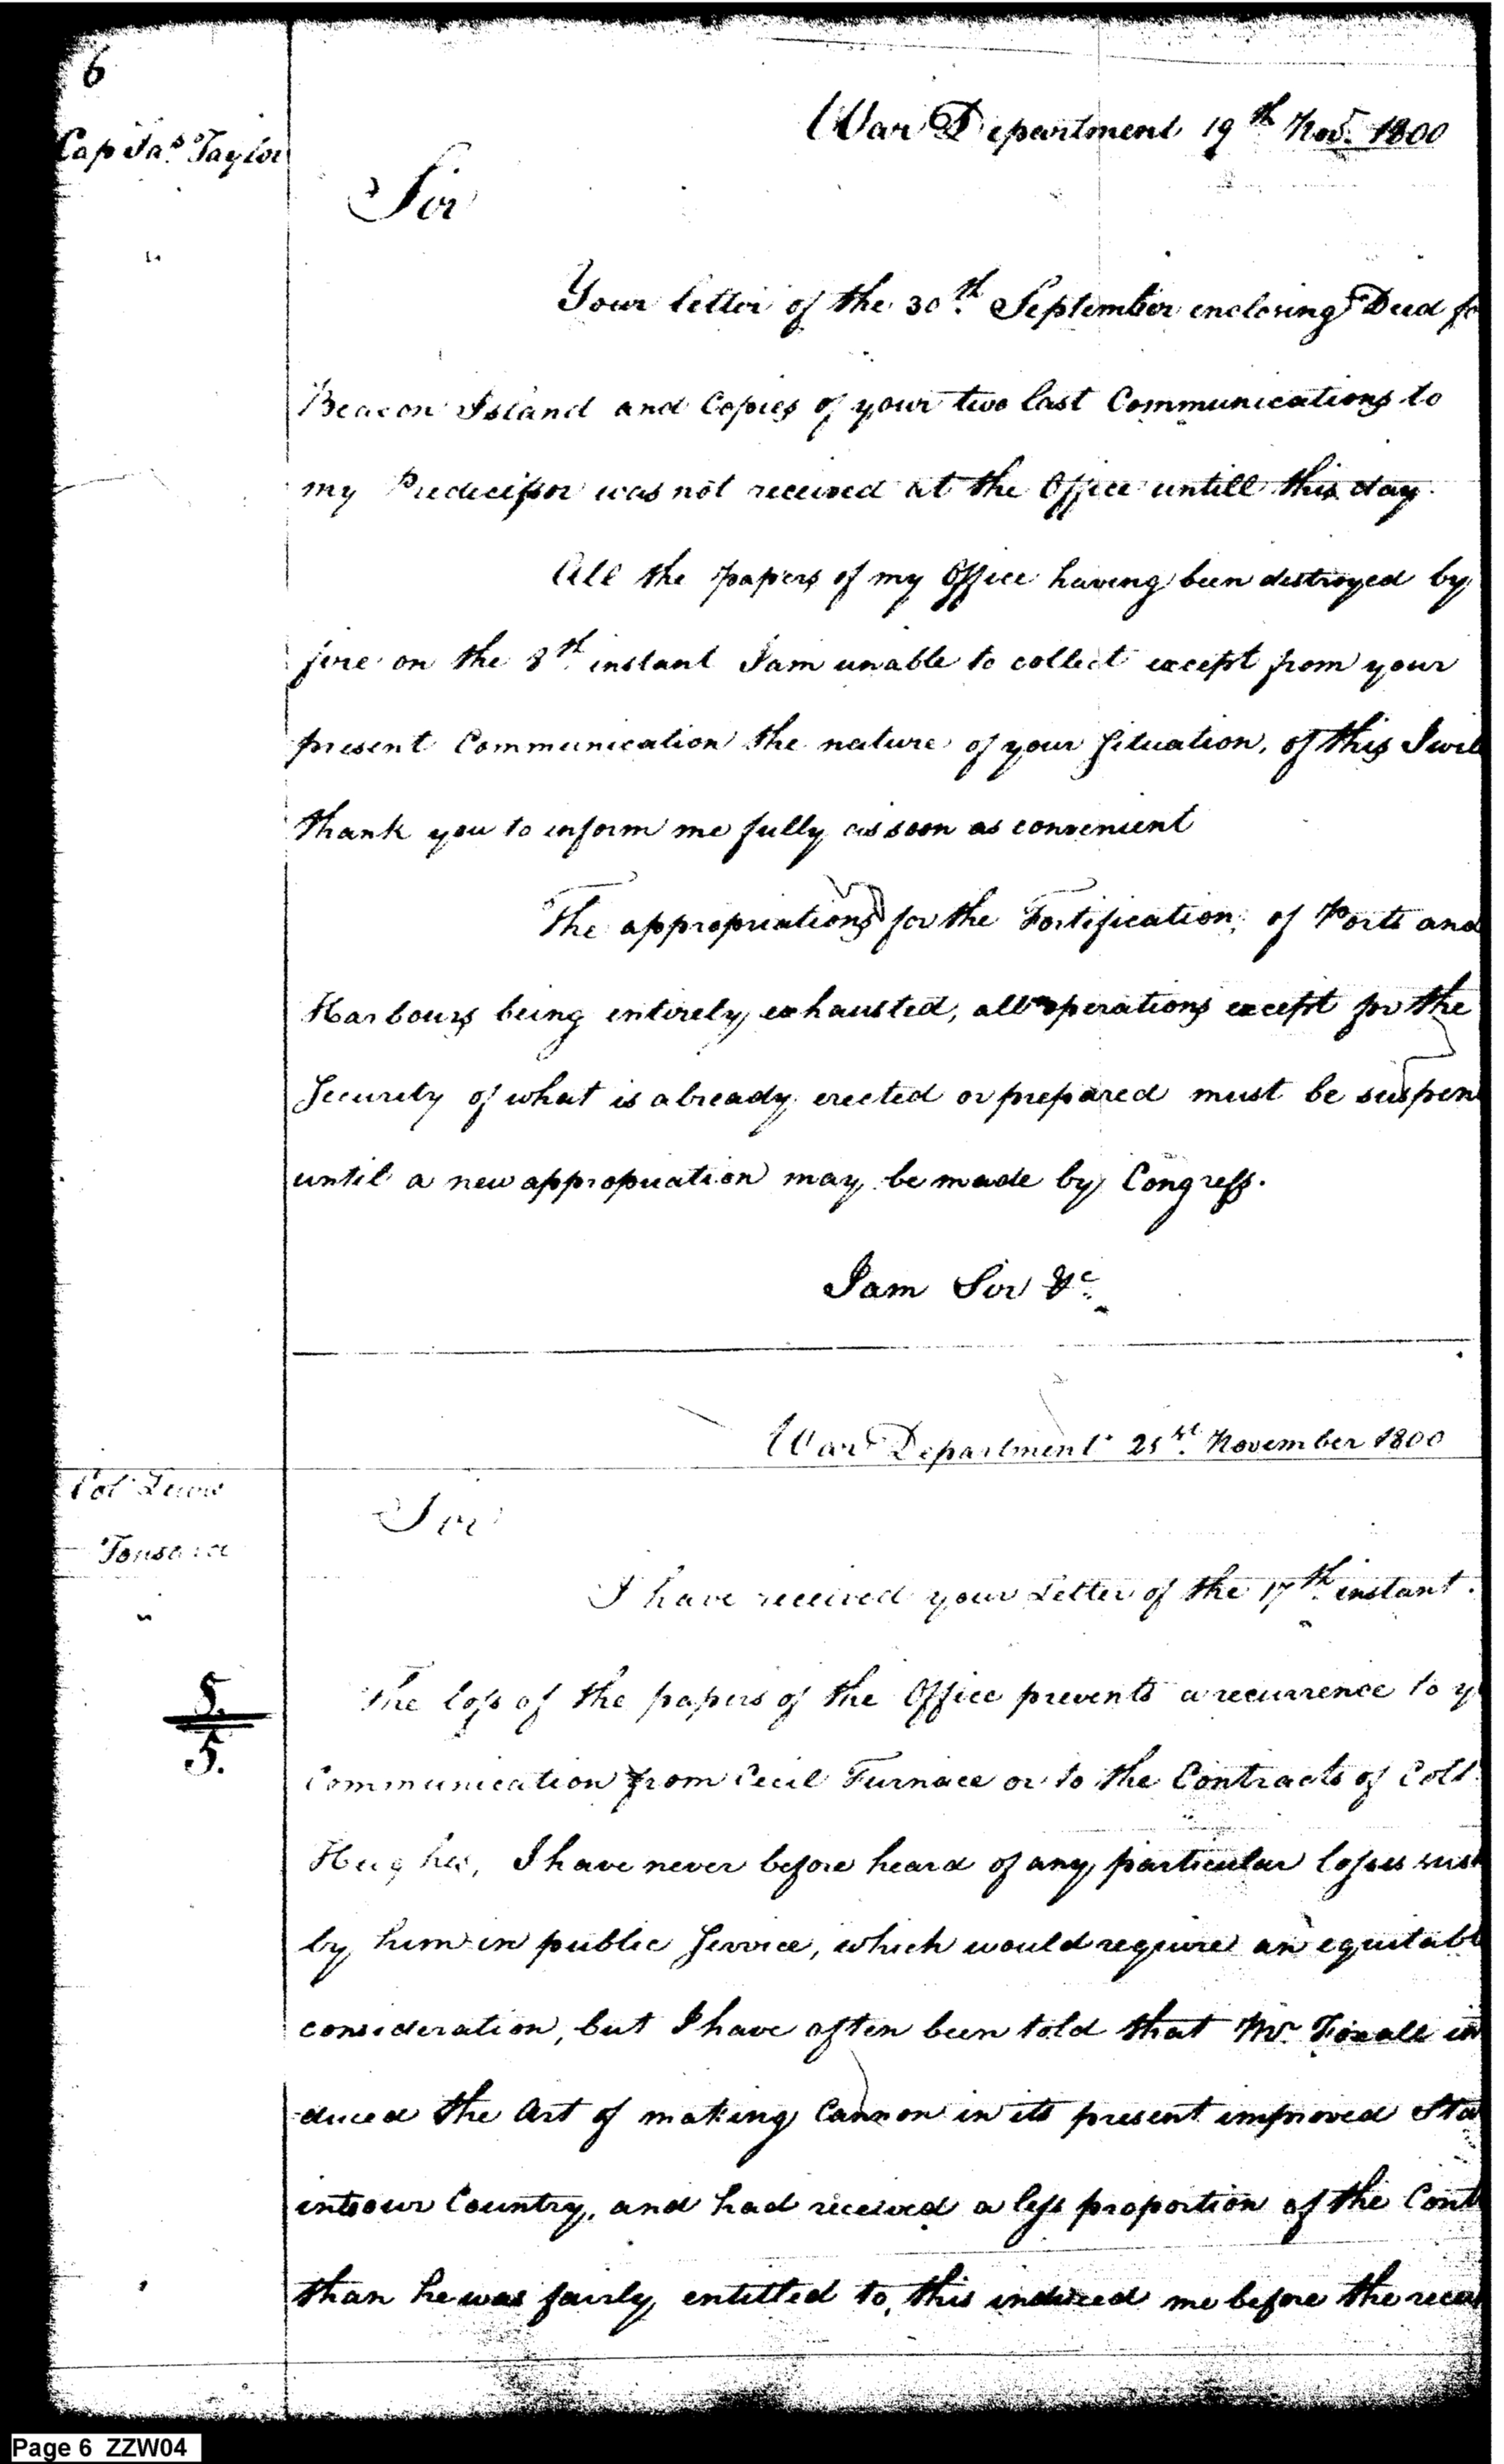 6
Cap Jas. Taylor
War Department 19th Nov. 1800
Sir
Your letter of the 30th September enclosing Deed fo
Beacon Island and Copies of your two last Communications to
my Predecessor was not received at the Office untill this day.
All the papers of my Office having been destroyed by
fire on the 8th instant I am unable to collect except from your
present Communication the nature of your Situation, of this I wil
thank you to inform me fully as soon as convenient
The appropriations for the Fortification of Ports and
Harbours being entirely exhausted, all operations except for the
Security of what is already erected or prepared must be suspen
until a new appropriation may be made by Congress.
I am Sir &c.
War Department 21st November 1800
Col Lewis
Tousard
Sir
I have received your Letter of the 17th instant.
The loss of the papers of the Office prevents a recurrence to y
Communication from Cecil Furnace or to the Contracts of Coll
Hughes, I have never before heard of any particular losses sus
by him in public Service, which would require an equitabl
consideration, but I have often been told that Mr. Foxall in
duced the Art of making Cannon in its present improved Sta
into our Country, and had received a less proportion of the Cont
than he was fairly entitled to, this induced me before the recei
5.
5.
Page 6 ZZW04